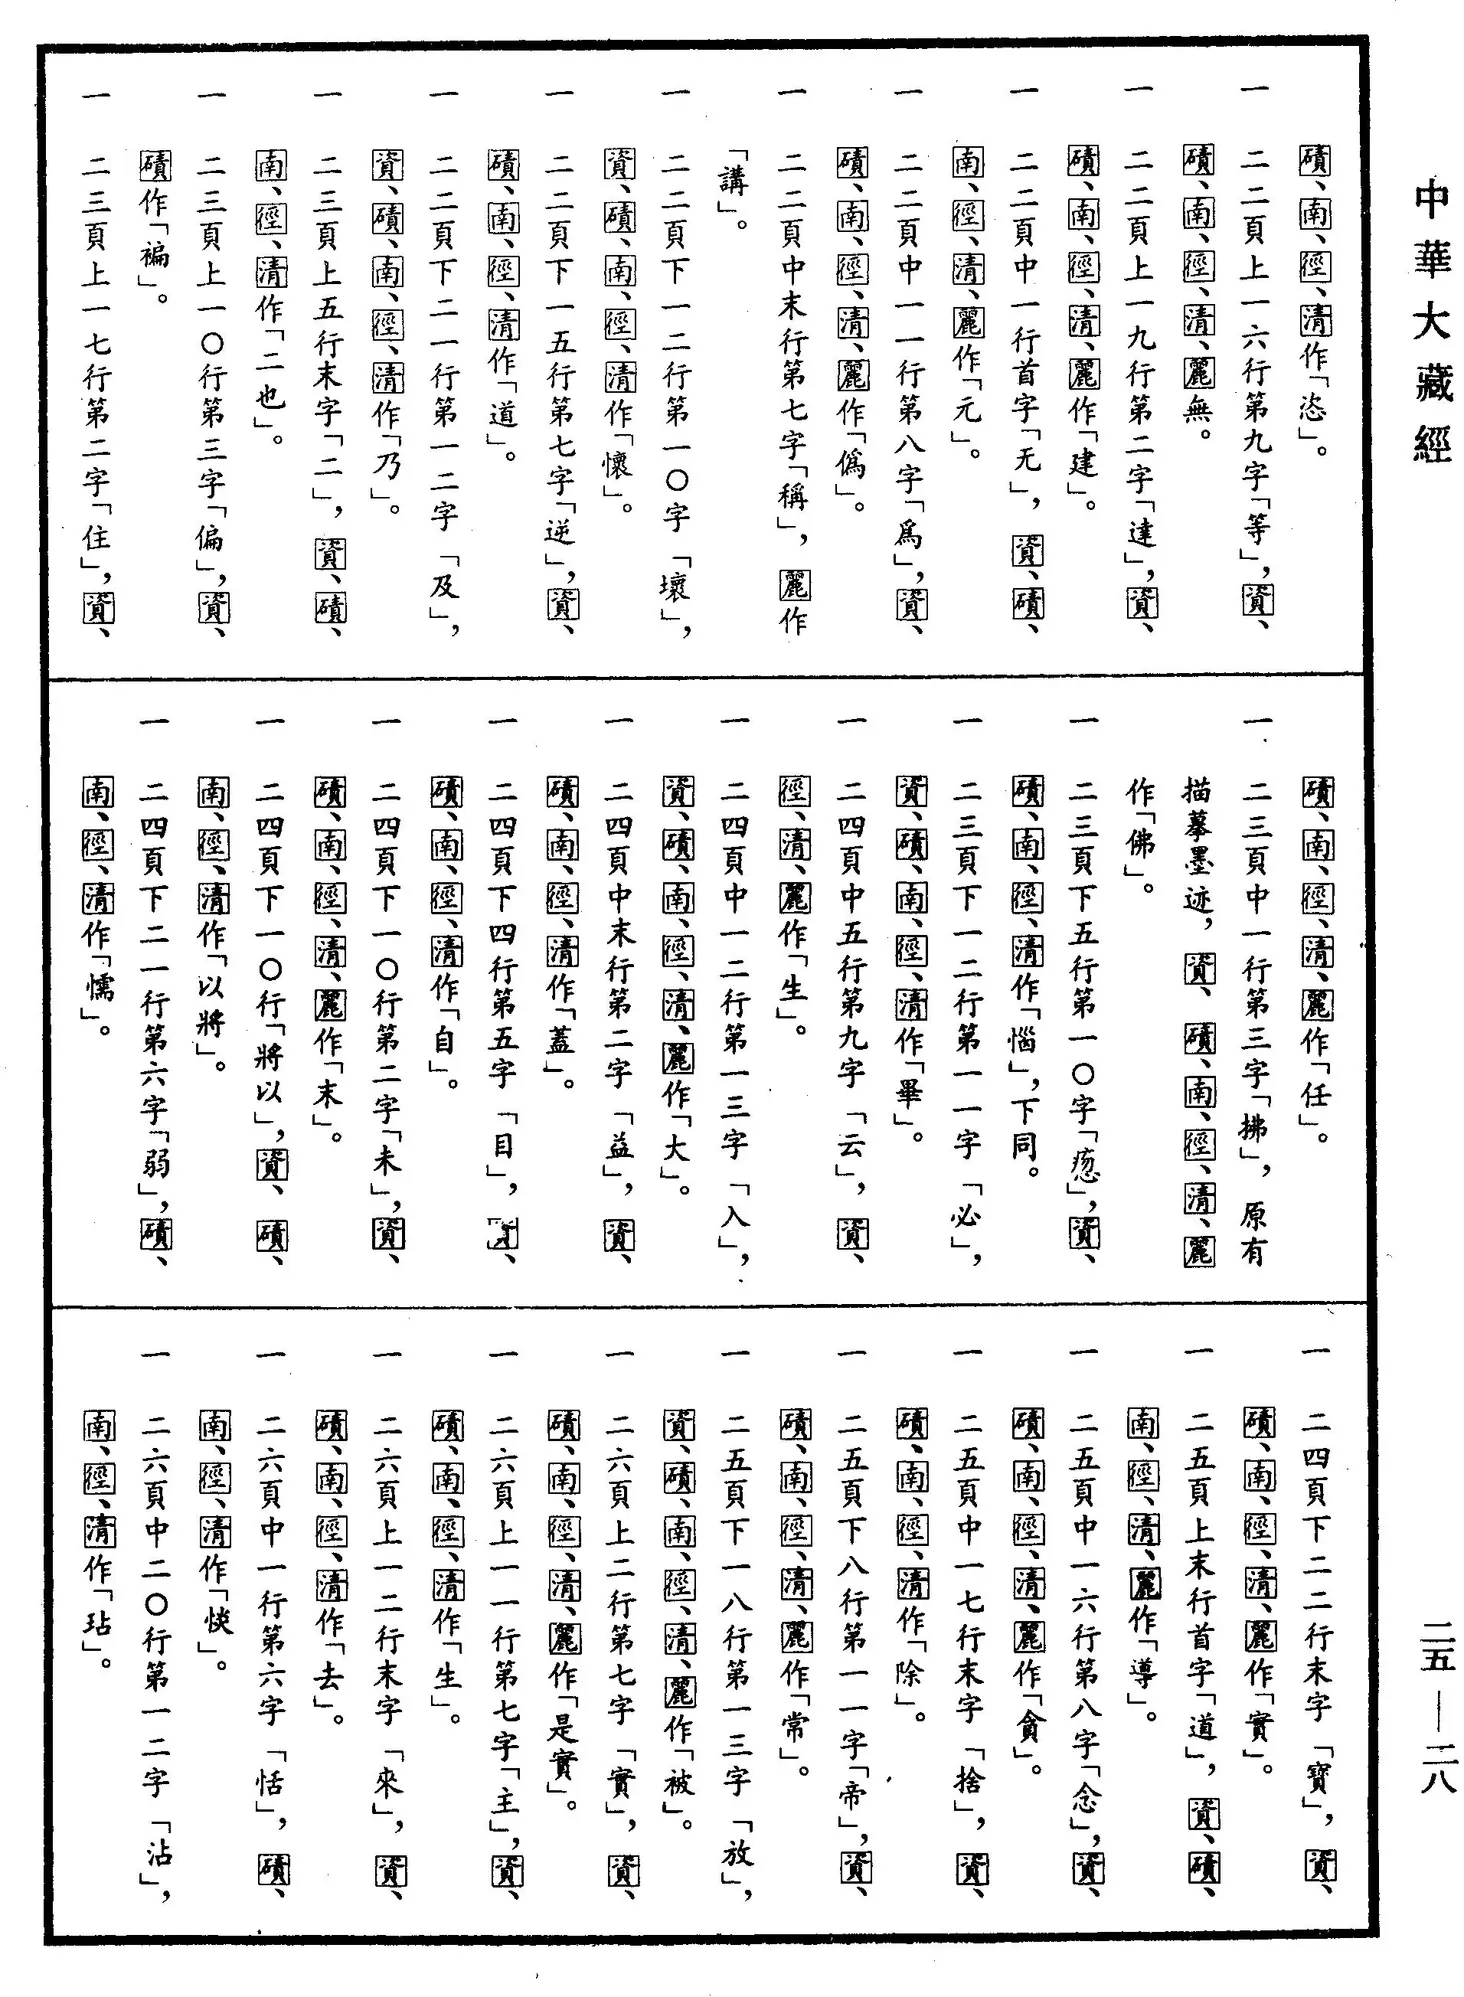 中華大藏經
磧、南、徑、清作「恣」。
一　二二頁上一六行第九字「等」，資、
磧、南、徑、清、麗無。
一　二二頁上一九行第二字「達」，資、
磧、南、徑、清、麗作「建」。
一　二二頁中一行首字「无」，資、磧、
南、徑、清、麗作「元」。
一　二二頁中一一行第八字「爲」，資、
磧、南、徑、清、麗作「僞」。
一　二二頁中末行第七字「稱」，麗作
「講」。
一　二二頁下一二行第一〇字「壞」，
資、磧、南、徑、清作「懷」。
一　二二頁下一五行第七字「逆」，資、
磧、南、徑、清作「道」。
一　二二頁下二一行第一二字「及」，
資、磧、南、徑、清作「乃」。
一　二三頁上五行末字「二」，資、磧、
南、徑、清作「二也」。
一　二三頁上一〇行第三字「偏」，資、
磧作「褊」。
一　二三頁上一七行第二字「住」，資、
磧、南、徑、清、麗作「任」。
一　二三頁中一行第三字「拂」，原有
描摹墨迹，資、磧、南、徑、清、麗
作「佛」。
一　二三頁下五行第一〇字「㾕」，資、
磧、南、徑、清作「惱」，下同。
一　二三頁下一二行第一一字「必」，
資、磧、南、徑、清作「畢」。
一　二四頁中五行第九字「云」，資、
徑、清、麗作「生」。
一　二四頁中一二行第一三字「入」，
資、磧、南、徑、清、麗作「大」。
一　二四頁中末行第二字「益」，資、
磧、南、徑、清作「蓋」。
一　二四頁下四行第五字「目」，資、
磧、南、徑、清作「自」。
一　二四頁下一〇行第二字「未」，資、
磧、南、徑、清、麗作「末」。
一　二四頁下一〇行「將以」，資、磧、
南、徑、清作「以將」。
一　二四頁下二一行第六字「弱」，磧、
南、徑、清作「懦」。
一　二四頁下二二行末字「寶」，資、
磧、南、徑、清、麗作「實」。
一　二五頁上末行首字「道」，資、磧、
南、徑、清、麗作「導」。
一　二五頁中一六行第八字「念」，資、
磧、南、徑、清、麗作「貪」。
一　二五頁中一七行末字「捨」，資、
磧、南、徑、清作「除」。
一　二五頁下八行第一一字「帝」，資、
磧、南、徑、清、麗作「常」。
一　二五頁下一八行第一三字「放」，
資、磧、南、徑、清、麗作「被」。
一　二六頁上二行第七字「實」，資、
磧、南、徑、清、麗作「是實」。
一　二六頁上一一行第七字「主」，資、
磧、南、徑、清作「生」。
一　二六頁上一二行末字「來」，資、
磧、南、徑、清作「去」。
一　二六頁中一行第六字「恬」，磧、
南、徑、清作「惔」。
一　二六頁中二〇行第一二字「沾」，
南、徑、清作「玷」。
二五—二八